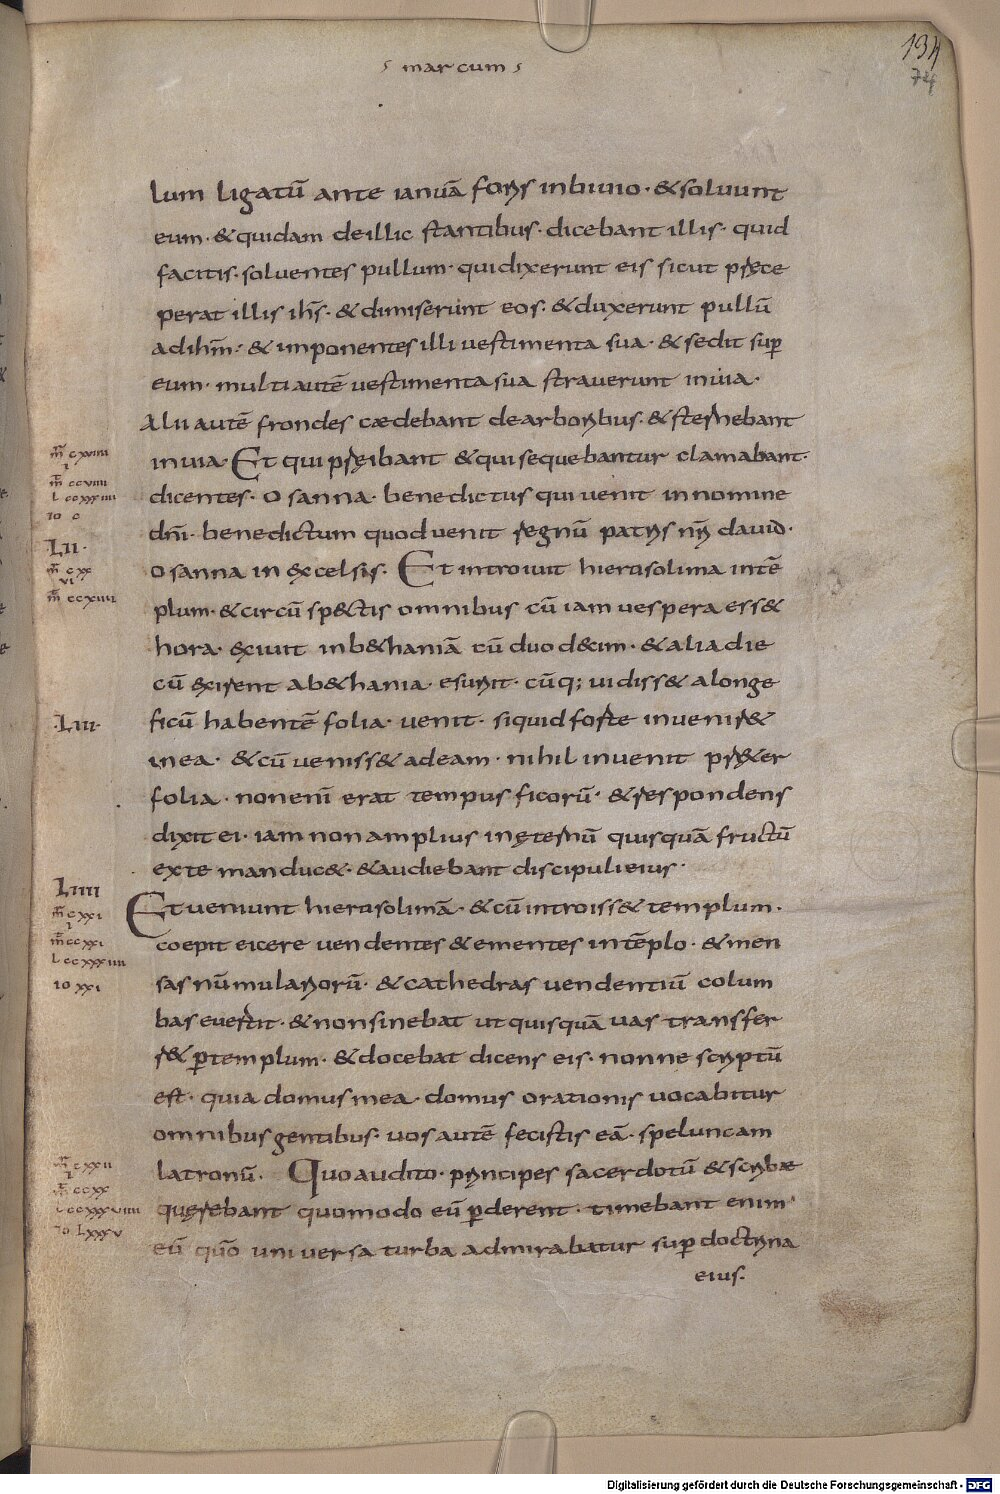 marcum
134
74
lum ligatū ante ianuā foris inbiuio· &soluunt
eum· &quidam deillic stantibus· dicebant illis· quid
facitis· soluentes pullum· quidixerunt eis sicut prece
perat illis ihs̄· &dimiserunt eos· &duxerunt pullū
adihm̄· & inponentes illi uestimenta sua· & sedit suꝑ
eum· multi autē uestimenta sua strauerunt inuia·
Alii autē frondes cædebant dearboribus· & sternebant
inuia Et qui preibant &qui sequebantur clamabant·
dicentes· osanna· benedictus qui uenit innomine
dnī· benedictum quod uenit regnū patris nr̄i dauid·
osanna in excelsis· Et introiuit hierusolima intē
plum· &circū spectis omnibus cū iam uespera ess&
hora· exiuit inb&haniā cū duodecim· &alia die
cū exirent ab&hania· esuriit· cūq; uidiss& alonge
ficū habentē folia· uenit· siquid forte inuenir&
inea· &cū ueniss& adeam· nihil inuenit pr&er
folia· nonenī erat tempus ficorū· &respondens
dixit ei· iam non amplius inęternū quisquā fructū
exte manduc&· &audiebant discipulieius·
Et ueniunt hierusolimā· &cū introiss& templum·
coepit eicere uendentes &ementes intēplo· &men
sas nūmulariorū· &cathedras uendentiū colum
bas euertit· &nonsinebat ut quisquā uas transfer
r& ꝑtemplum· &docebat dicens eis· nonne scriptū
est· quia domus mea· domus orationis uocabitur
omnibus gentibus· uos autē fecistis eā· speluncam
latronū· Quo audito· principes sacerdotū &scribæ
querebant quomodo eū ꝑderent· timebant enim
eū quō uniuersa turba admirabatur suꝑ doctrina
eius·
m̄ cxviiii
i
m̄ ccviiii
l ccxxxiiii
io c
Lii·
m̄ cxx
vi
m̄ ccxiiii
Liii·
Liiii
m̄ cxxi
i
m̄ ccxxi
l ccxxxviiii
io xxi
m̄ cxxii
i
m̄ ccxx
l ccxxxviiii
io lxxxv
Digitalisierung gefördert durch die Deutsche Forschungsgemeinschaft - DFG